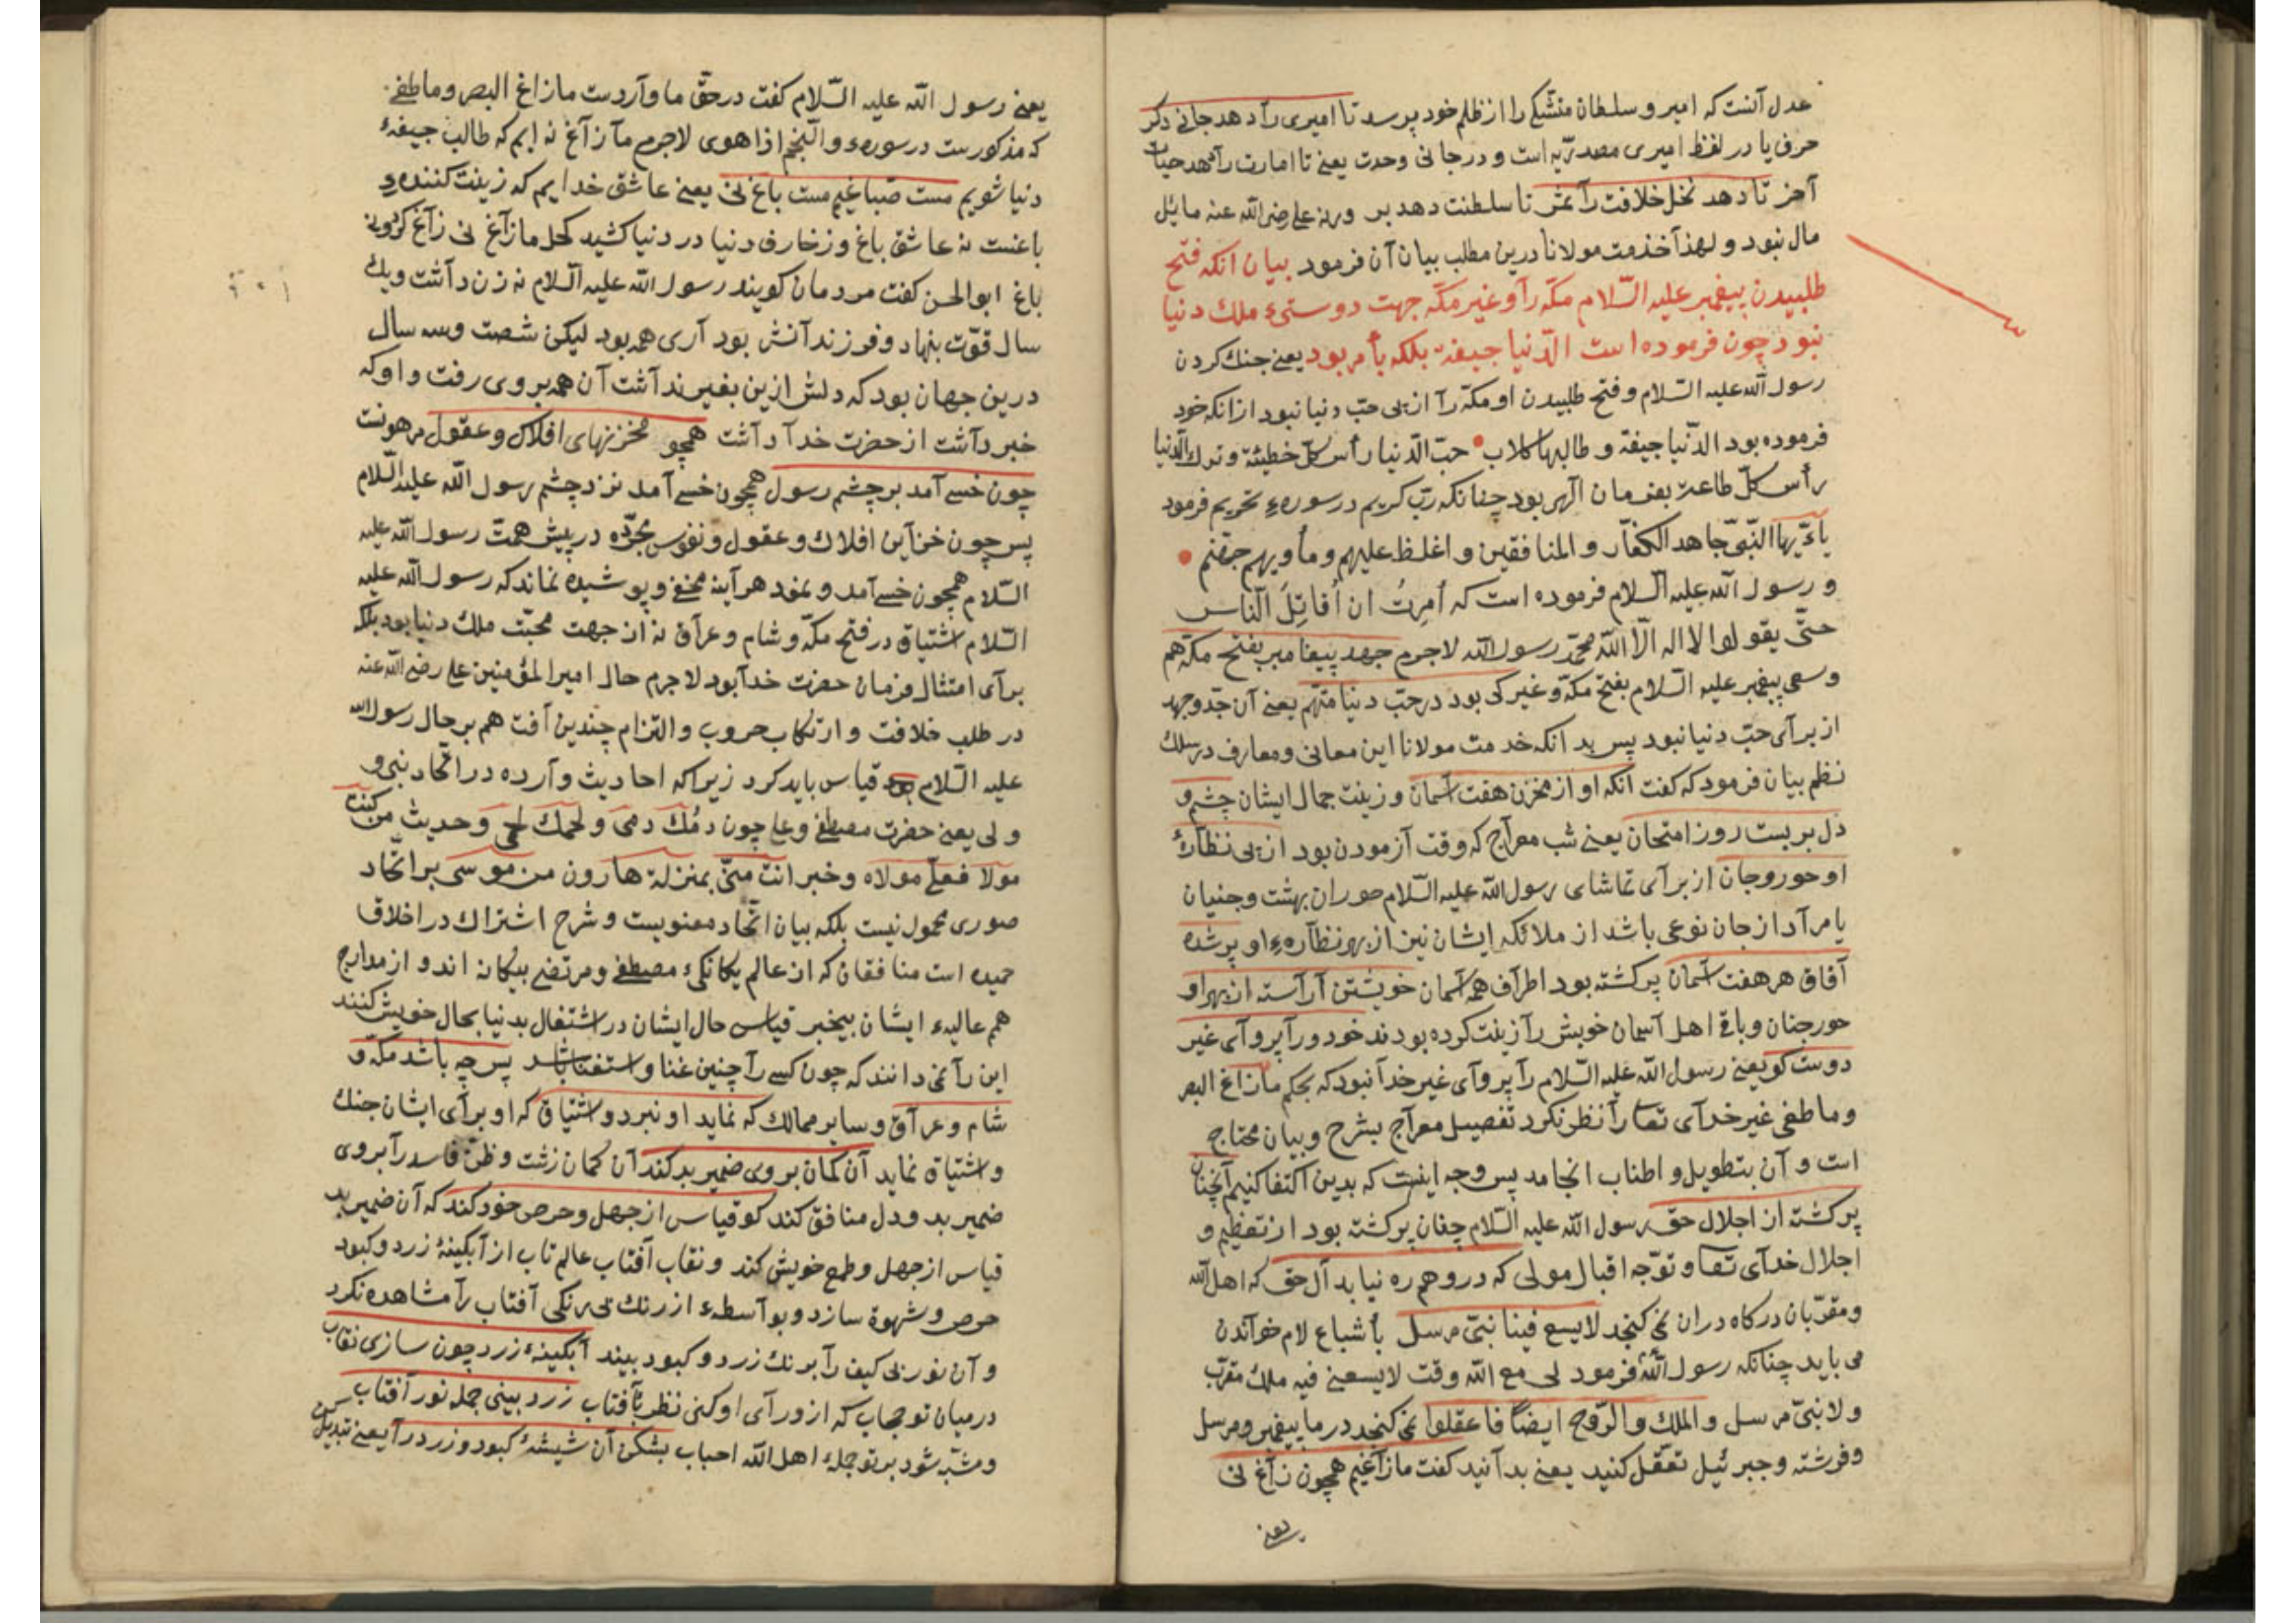 عدل آنست که امیر و سلطان متشکی را از ظلم خود پرسد تا امیری را دهد جانی دکر
حرف یا در لفظ امیری مصدریه است و در جانی وحدت یعنی تا امارت را دهد حیات
آخر تا دهد نخل خلافت را ثمر تا سلطنت دهد بر ورنه علی رضی الله عنه مایل
مال نبود و لهذا خدمت مولانا درین مطلب بیان آن فرمود بیان آنکه فتح
طلبیدن پیغمبر علیه السّلام مکّه را و غیر مکّه جهت دوستیء ملك دنیا
نبود چون فرموده است الدّنیا جیفة بلکه بأمر بود یعنی جنك کردن
رسول الله علیه السّلام و فتح طلبیدن او مکّه را از پی حبّ دنیا نبود از انکه خود
فرموده بود الدّنیا جیفة و طالبها کلاب حبّ الدّنیا رأس کلّ خطیئة و ترك الدّنیا
رأس کلّ طاعة بفرمان الهی بود چنانکه ربّ کریم در سورهء تحریم فرمود
یاءیّها النّبیّ جاهد الکفّار و المنافقین و اغلظ علیهم و مأویهم جهنّم
و رسول الله علیه السلام فرموده است که اُمِرتُ ان اُقاتِلَ النّاس
حتّی یقولوا لا اله الّا الله محمّد رسول الله لاجرم جهد پیغامبر بفتح مکّه هم
و سعی پیغمبر علیه السّلام بفتح مکّه و غیر کی بود در حبّ دنیا متّهم یعنی آن جدّ و جهد
از برای حبّ دنیا نبود پس بدانکه خدمت مولانا این معانی و معارف در سلك
نظم بیان فرمود که کفت انکه او از مخزن هفت آسمان و زینت جمال ایشان چشم و
دل بربست روز امتحان یعنی شب معراج که وقت آزمودن بود از پی نظّارهٔ
او حور و جان از برای تماشای رسول الله علیه السّلام حوران بهشت و جنیان
یا مراد از جان نوعی باشد از ملائکه ایشان نیز از بهر نظّارهء او پر شده
آفاق هر هفت آسمان پر کشته بود اطراف همه آسمان خویشتن آراسته از بهر او
حور جنان و باقی اهل آسمان خویش را زینت کرده بودند خود ورا پروای غیر
دوست کو یعنی رسول الله علیه السّلام را پروای غیر خدا نبود که بحکم مازاغ البصر
و ما طغی غیر خدای تعا را نظر نکرد تفصیل معراج بشرح و بیان محتاج
است و آن بتطویل و اطناب انجامد پس وجه اینست که بدین اکتفا کنیم آنچنان
پر کشته از اجلال حق رسول الله علیه السّلام چنان پر کشته بود از تعظیم و
اجلال خدای تعا و توّجه اقبال مولی که درو هم ره نیابد آل حق که اهل الله
و مقرّبان درکاه دران نمی کنجد لا یسع فینا نبیّ مرسل بأشباع لام خواندن
می باید چنانکه رسول الله فرمود لی مع الله وقت لا یسعنی فیه ملك مقرّب
و لا نبیّ مرسل و الملك و الرّوح ایضًا فاعقلوا نمی کنجد در ما پیغمبر و مرسل
و فرشته و جبرئیل تعقّل کنید یعنی بدانید کفت ما زاغیم همچون زاغ نی
یعنی
یعنی رسول الله علیه السّلام کفت در حقّ ما واردست مازاغ البصر و ما طغی
که مذکورست در سورهء والنّجم اذا هوی لاجرم ما زاغ نه ایم که طالب جیفهٔ
دنیا شویم مست صبّاغیم مست باغ نی یعنی عاشق خدایم که زینت کنندهء
باغست نه عاشق باغ و زخارف دنیا در دنیا کشید کحل مازاغ نی زاغ کزید نه
باغ ابو الحسن کفت مردمان کویند رسول الله علیه السلام نه زن داشت و یك
سال قوّت بنهاد و فرزندانش بود آری همه بود لیکن شصت و سه سال
درین جهان بود که دلش ازین بغیر نداشت آن همه بر وی رفت و او که
خبر داشت از حضرت خدا داشت همچو مخزنهای افلاك و عقول مرهونست
چون خسی آمد بر چشم رسول همچون خسی آمد نزد چشم رسول الله علیه السّلام
پس چون خزاین افلاك و عقول و نفوس مجرّده در پیش همّت رسول الله علیه
السّلام همچون خسی آمد و نمود هر آینه مخفی و پوشیده نماند که رسول الله علیه
السّلام اشتیاق در فتح مکّه و شام و عراق نه از جهت محبّت ملك دنیا بود بلکه
برای امتثال فرمان حضرت خدا بود لاجرم حال امیر المؤمنین علی رضی الله عنه
در طلب خلافت و ارتکاب حروب و التزام چندین آفت هم بر حال رسول الله
علیه السّلام قیاس باید کرد زیرا که احادیث وارده در اتّحاد نبی و
ولی یعنی حضرت مصطفی و علی چون دمُك دمی و لحمك لحمی و حدیث من کنت
مولا فعلی مولاه و خبر انت منّی بمنزلة هارون من موسی بر اتّحاد
صوری محمول نیست بلکه بیان اتّحاد معنویست و شرح اشتراك در اخلاق
حمیده است منافقان که از عالم یکانکیء مصطفی و مرتضی بیکانه اند و از مدارج
هم عالیهء ایشان بیخبر قیاس حال ایشان در اشتغال بدنیا بحال خویش کنند
این را نمی دانند که چون کسی را چنین غنا و استغنا باشد پس چه باشد مکّه و
شام و عراق و سایر ممالك که نماید او نبرد و اشتیاق که او برای ایشان جنك
و اشتیاق نماید آن کمان بر وی ضمیر بد کند آن کمان زشت و ظنّ فاسد را بر وی
ضمیر بد و دل منافق کند کو قیاس از جهل و حرص خود کند که آن ضمیر بد
قیاس از جهل و طمع خویش کند و نقاب آفتاب عالم تاب از آبکینهٔ زرد و کبود
حرص و شهوة سازد و بواسطهء از رنك بی رنکی آفتاب را مشاهده نکرد
و آن نور بی کیف را برنك زرد و کبود بیند آبکینهء زرد چون سازی نقاب
درمیان تو حجاب که از ورای او کنی نظر بآفتاب زرد بینی جمله نور آفتاب
و مشتبه شود بر تو جملهء اهل الله احباب بشکن آن شیشهٔ کبود و زرد را یعنی تبدیل کن